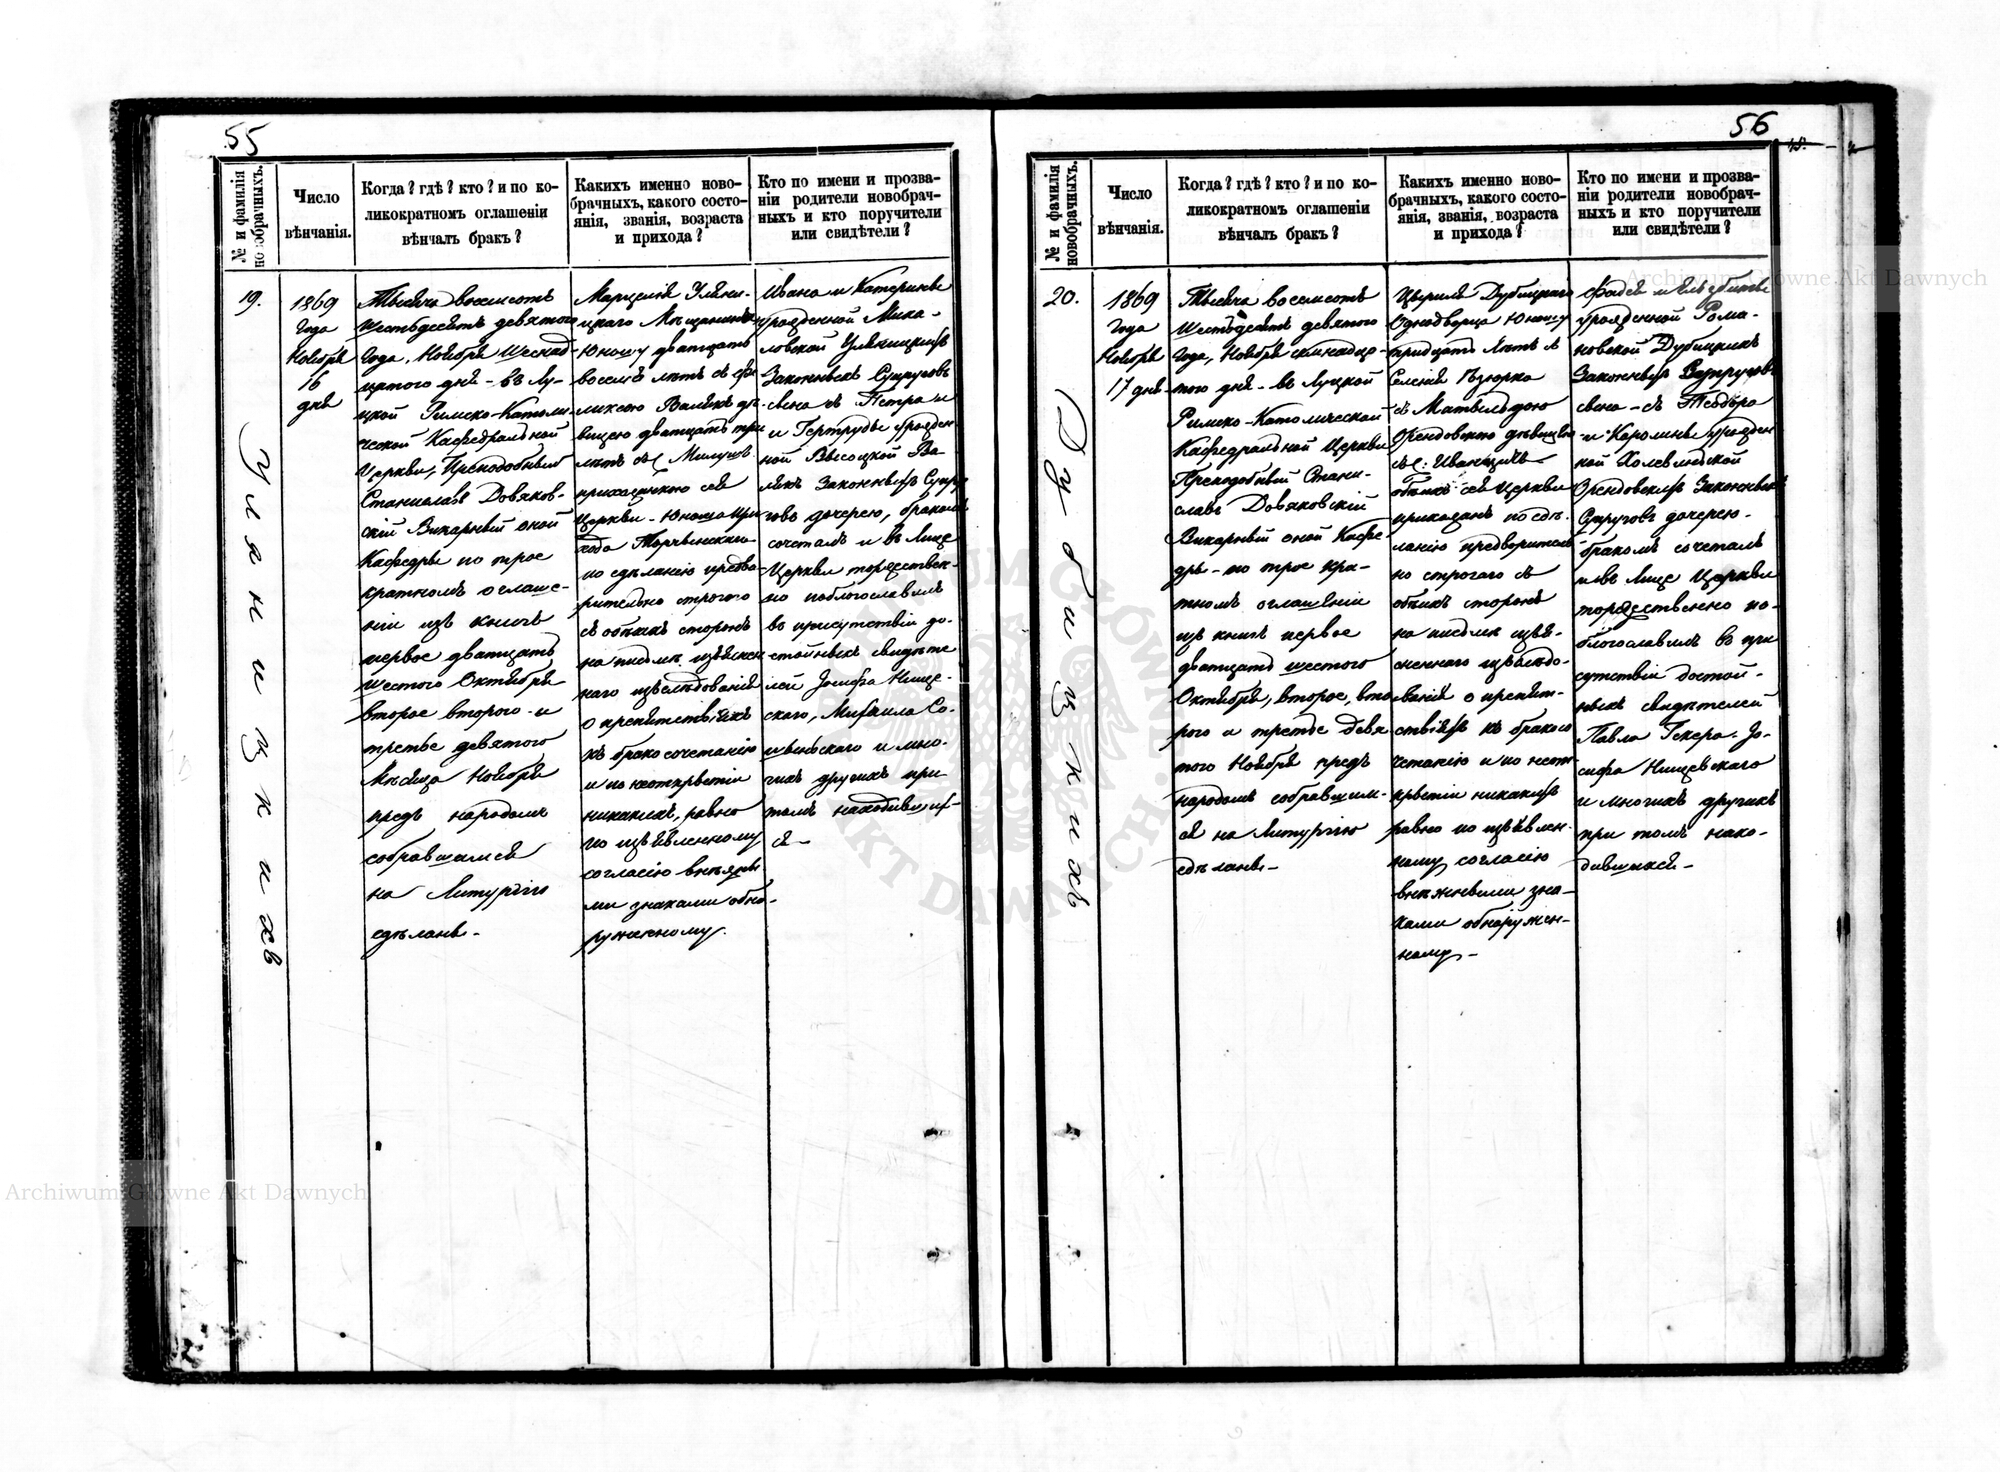 55
№ и фамилія новобрачныхъ.
Число
вѣнчанія.
Когда? гдѣ? кто? и по ко-
ликократномъ оглашеніи
вѣнчалъ бракъ?
Какихъ именно ново-
брачныхъ, какого состо-
янія, званія, возраста
и прихода?
Кто по имени и прозва-
ніи родители новобрач-
ныхъ и кто поручители
или свидѣтели?
19.
Уляницкихъ
1869
Года
Ноября
16
дня
Тысяча восемсотъ
шестьдесятъ девятого
Года, Ноября шеснад-
цатого дня - въ Лу-
цкой Римско-Католи
ческой Кафедральной
Церкви, Преподобный
Станиславъ Довяков-
скій Викарный оной
Кафедры по трое
кратномъ оглаше-
ніи изъ коихъ
первое двадцать
шестого Октября
второе второго и
третье девятого
Мѣсяца Ноября
предъ народомъ
собравшимся
на Литургію
сдѣланы -
Марцелія Уляни-
цкаго Мѣщанина
Юношу двадцать
восемь лѣтъ съ Фе
ликсою Валекъ дѣ-
вицею двадцать три
лѣтъ съ С. Милушъ
прихожанкою сея
Церкви - Юноша при
хода Торчинскаго
по сдѣланію предва-
рительно строгого
съ обѣихъ сторонъ
на письмѣ изъяснен
наго изслѣдованія
о препятствіяхъ
къ бракосочетанію
и по неоткрытіи
никакихъ, равно
по изъявленному
согласію внѣшны
ми знаками обна-
руженному.
Ивана и Катерины
урожденной Мика-
ловской Уляницкихъ
Законныхъ Супруговъ
сына съ Петра и
и Гертруды урожден
ной Высоцкой Ва-
лекъ Законныхъ Супру
говъ дочерью, бракомъ
сочеталъ и въ Лице
Церкви торжествен-
но поблогославилъ
въ присутствіи до-
стойныхъ свидѣте
лей Іосифа Нище-
скаго, Михаила Со-
и мно-
гихъ другихъ при
томъ находивших-
ся -
56
№ и фамилія новобрачныхъ.
Число
вѣнчанія.
Когда? гдѣ? кто? и по ко-
ликократномъ оглашеніи
вѣнчалъ бракъ?
Какихъ именно ново-
брачныхъ, какого состо-
янія, званія, возраста
и прихода?
Кто по имени и прозва-
ніи родители новобрач-
ныхъ и кто поручители
или свидѣтели?
20.
Дубицкихъ
1869
Года
Ноября
17 дня
Тысяча восемсотъ
шестьдесятъ девятого
Года, Ноября семнадца-
того дня - въ Луцкой
Римско-Католической
Кафедральной Церкви
Преподобный Стани-
славъ Довяковскій
Викарный оной Кафе
дры - по трое кра-
тномъ оглашеніи
изъ коихъ первое
двадцать шестого
Октября, второе, вто
рого и третье девя
того Ноября предъ
народомъ собравшим-
ся на Литургію
сдѣланы -
Дубицкаго
Однодворца Юношу
тридцать лѣтъ съ
Селенія
съ Матыльдою
Орендовскою дѣвицею
съ С. Иванчицъ
обѣихъ сея Церкви
прихожанъ по сдѣ-
ланію предварительно
но строгаго съ
обѣихъ сторонъ
на письмѣ изъя-
сненнаго изслѣдо-
ванія о препят-
ствіяхъ къ бракосо
четанію и по неот
крытіи никакихъ
равно по изъявлен-
ному согласію
внѣшными зна-
ками обнаружен-
ному -
Фадея и Елизбиты
урожденной Рома-
новской Дубицкихъ
Законныхъ Супруговъ
сына - съ Теодора
и Каролины урожден
ной
Орендовскихъ Законныхъ
Супруговъ дочерью -
бракомъ сочеталъ
и въ Лице Церкви
торжественно по-
блогославилъ въ при
сутствіи достой-
ныхъ свидѣтелей
Павла Гекера. Іо-
сифа Нищевскаго
и многихъ другихъ
при томъ нахо-
дившихся -
Archiwum Główne Akt Dawnych
Archiwum Główne Akt Dawnych
ARCHIWUM GŁÓWNE AKT DAWNYCH